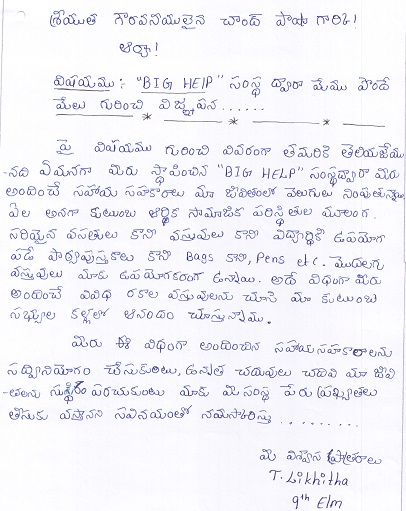 శ్రీయుత గౌరవనీయులైన చాంద్ పాషా గారికి!
ఆర్యా!
విషయము :- "BIG HELP" సంస్థ ద్వారా మేము పొందే
మేలు గురించి విజ్ఞాపన ......
పై విషయము గురించి వివరంగా తమరికి తెలియజేయు
-నది ఏమనగా మీరు స్థాపించిన "BIG HELP" సంస్థద్వారా మీరు
అందించే సహాయ సహకారాలు మా జీవితంలో వెలుగులు నింపుతున్నాయి
ఏల అనగా కుటుంబ ఆర్థిక సామాజిక పరిస్థితుల మూలంగ
సరియైన వసతులు కాని వస్తువులు కాని విద్యార్థికి ఉపయోగ
పడే పాఠ్యపుస్తకాలు కాని Bags కాని, Pens etc. మొదలగు
వస్తువులు మాకు ఉపయోగకరంగా ఉన్నాయి. అదే విధంగా మీరు
అందించే వివిధ రకాల వస్తువులను చూసి మా కుటుంబ
సభ్యుల కళ్లలో ఆనందం చూస్తున్నాము.
మీరు ఈ విధంగా అందించిన సహాయసహకారాలను
సద్వినియోగం చేసుకుంటు, ఉన్నత చదువులు చదివి మా జీవి
-తాలను సుస్థిరం పరచుకుంటు మాకు మీ సంస్థ పేరు ప్రఖ్యాతలు
తీసుకు వస్తానని సవినయంతో నమస్కరిస్తు .........
మీ విశ్వసనీయ
T. Likhitha
9th E/m